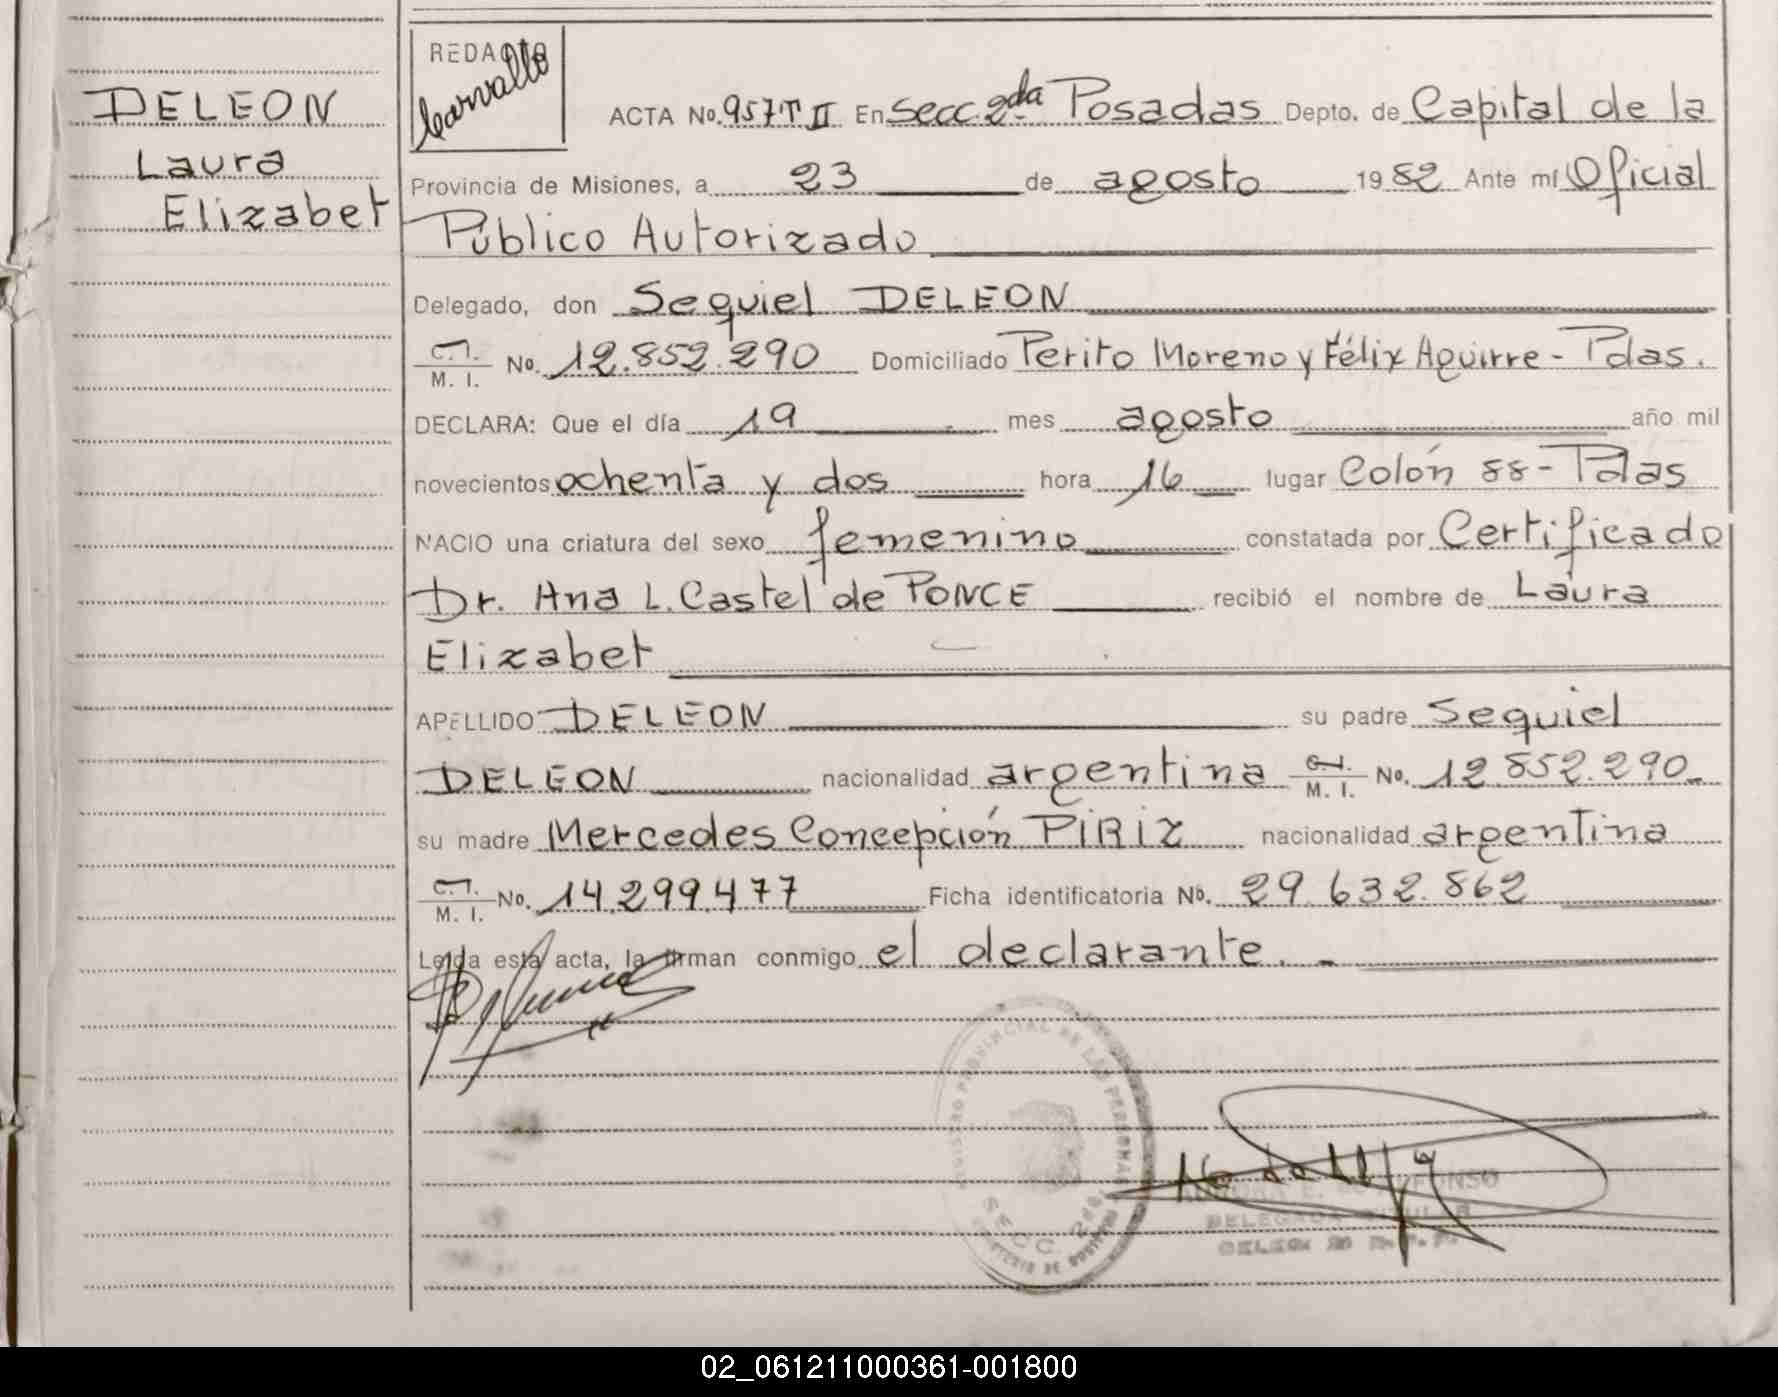 DELEON
Laura
Elizabet
REDACTO
Carvallo
ACTA No. 957 T II En Secc. 2da Posadas Depto. de Capital de la
Provincia de Misiones, a 23 de agosto 1982 Ante mí Oficial
Público Autorizado
Delegado, don Sequiel DELEON
C.I. / M. I. No. 12.852.290 Domiciliado Perito Moreno y Félix Aguirre - Pdas.
DECLARA: Que el día 19 mes agosto año mil
novecientos ochenta y dos hora 16 lugar Colón 88 - Pdas
NACIO una criatura del sexo femenino constatada por Certificado
Dr. Ana L. Castel de PONCE recibió el nombre de Laura
Elizabet
APELLIDO DELEON su padre Sequiel
DELEON nacionalidad argentina C.I. / M. I. No. 12.852.290
su madre Mercedes Concepción PIRIZ nacionalidad argentina
C.I. / M. I. No. 14.299.477 Ficha identificatoria No. 29.632.862
Leída esta acta, la firman conmigo el declarante. -
REGISTRO PROVINCIAL DE LAS PERSONAS
SECC. 2da
02_061211000361-001800